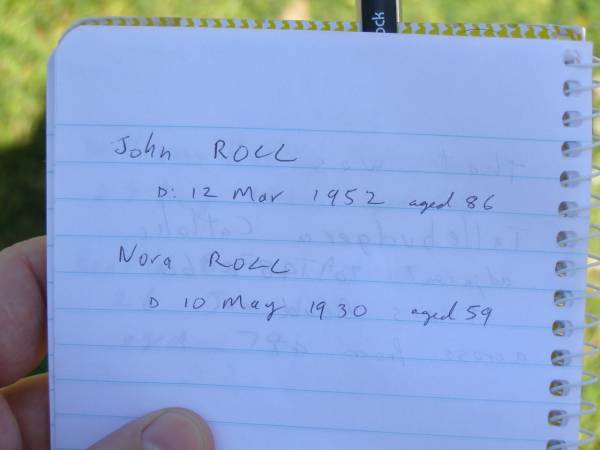 John ROLL
D: 12 Mar 1952 aged 86
Nora ROLL
D 10 May 1930 aged 59